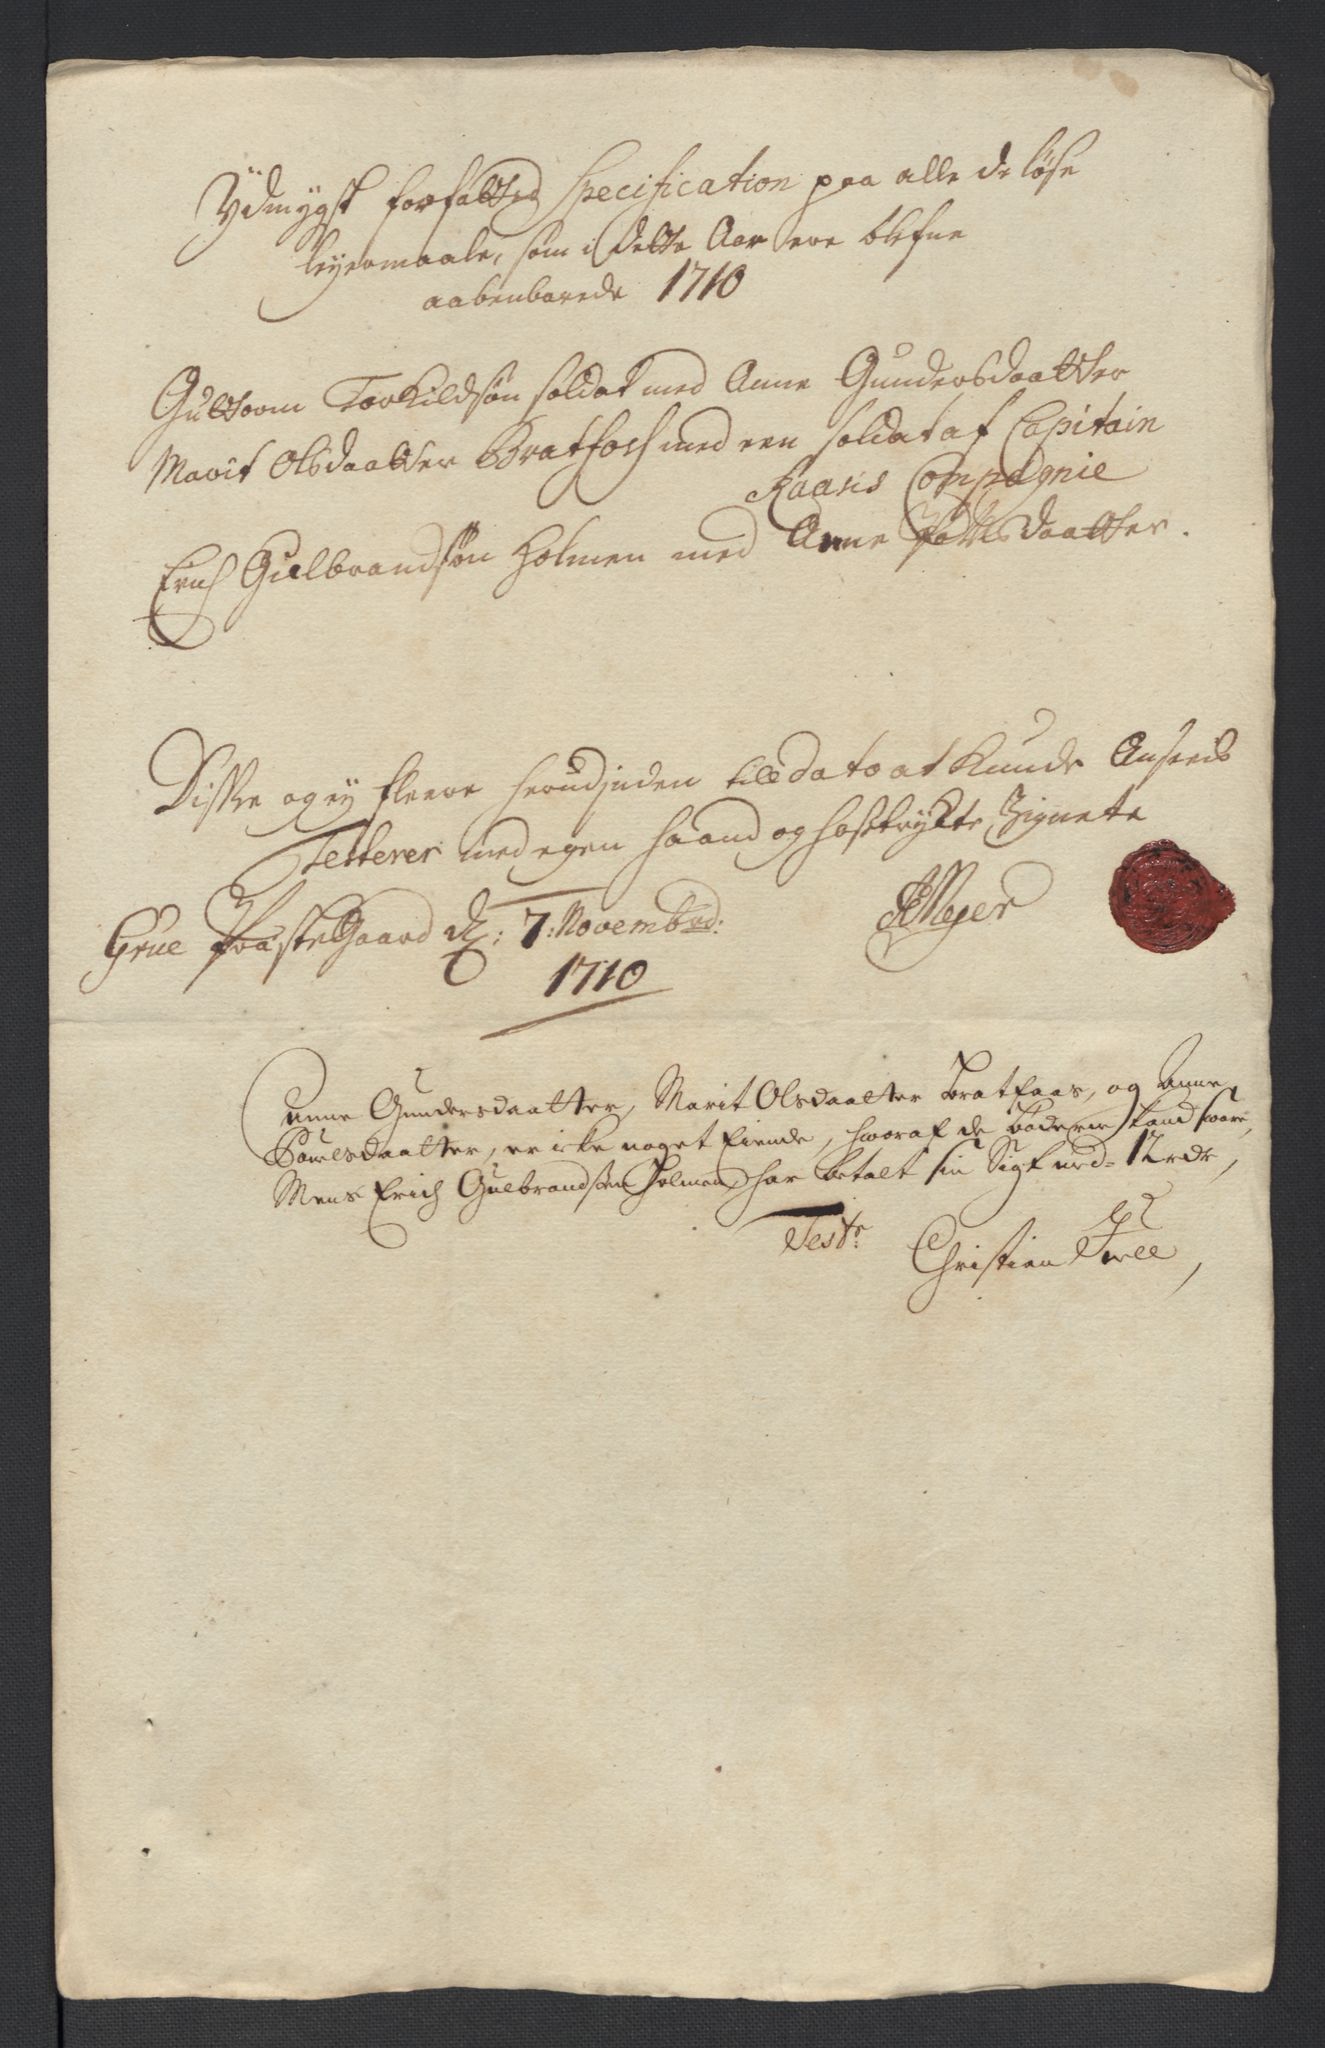 Ydmygst forfatted Specification paa alle de løse
leyermaale, som i dette Aar ere blefne
aabenbarede 1710
Guttorm Torkildsøn soldat med Anne Gundersdaatter
Marit Olsdaatter Bratfoss med een soldat af Capitain
Raasis Compagnie
Erich Gulbrandsøn Holmen med Anne Povelsdaatter.
Disse og ey fleere herudjnden till dato at kunde Ansees
Testerer med egen haand og hostrykte Zignete
Grue Præste Gaard d: 7: Novembrd:
1710
Meyer
Anne Gundersdaatter, Marit Olsdaatter Bratfaas, og Anne
Powelsdaatter, er icke noget Eiende, hworaf de Bøderne kand sware,
Mens Erich Gulbrandsen Holmen, har betalt sin Sigt med 12 rdr,
Test: Christian